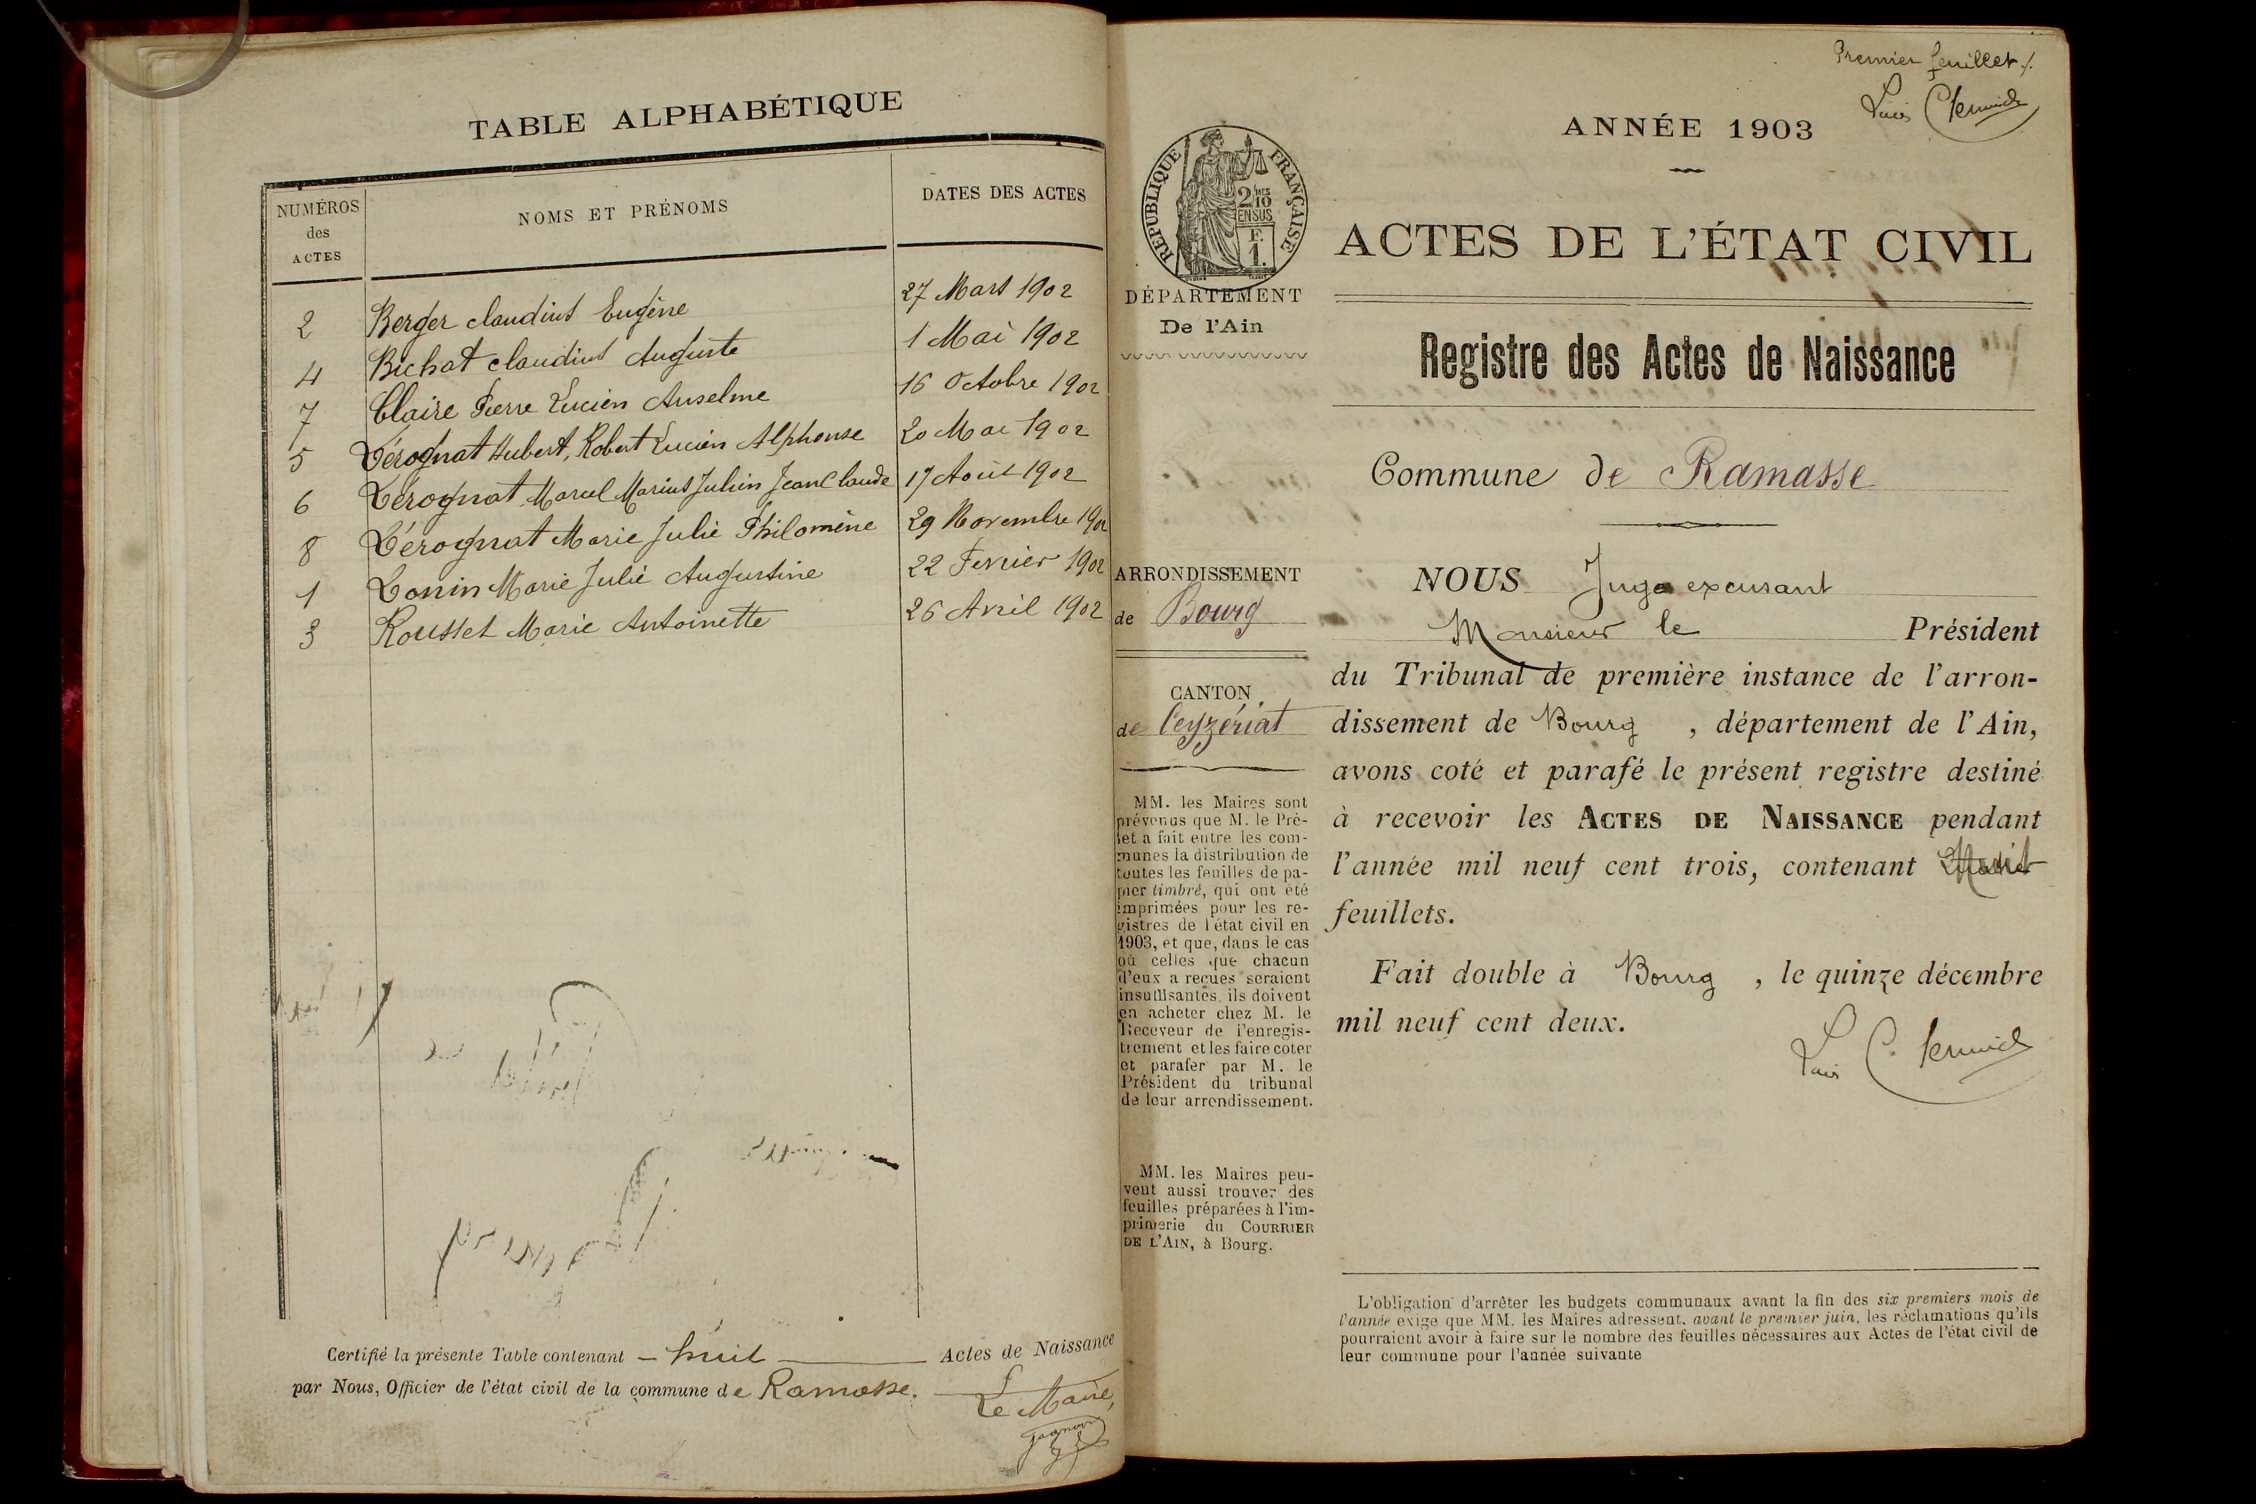 TABLE ALPHABÉTIQUE
NUMÉROS
des
ACTES
NOMS ET PRÉNOMS
DATES DES ACTES
2 Berger Claudius Eugène 27 Mars 1902
4 Bichat Claudius Auguste 1 Mai 1902
7 Claire Pierre Lucien Anselme 16 Octobre 1902
5 Pérognat Hubert, Robert Lucien Alphonse 20 Mai 1902
6 Pérognat Marcel Marius Julien Jean Claude 17 Août 1902
8 Pérognat Marie Julie Philomène 29 Novembre 1902
1 Marie Julie Augustine 22 Fevrier 1902
3 Rousset Marie Antoinette 26 Avril 1902
Certifié la présente Table contenant - huit - Actes de Naissance
par Nous, Officier de l'état civil de la commune de Ramasse.
Le Maire,
Premier feuillet ./.
ANNÉE 1903
RÉPUBLIQUE FRANÇAISE
2/10 EN SUS
F. 1.
ACTES DE L'ÉTAT CIVIL
DÉPARTEMENT
De l'Ain
Registre des Actes de Naissance
Commune de Ramasse
ARRONDISSEMENT
de Bourg
CANTON
de Ceyzériat
MM. les Maires sont
prévenus que M. le Pré-
fet a fait entre les com-
munes la distribution de
toutes les feuilles de pa-
pier timbré, qui ont été
imprimées pour les re-
gistres de l'état civil en
1903, et que, dans le cas
où celles que chacun
d'eux a reçues seraient
insuffisantes, ils doivent
en acheter chez M. le
Receveur de l'enregis-
trement et les faire coter
et parafer par M. le
Président du tribunal
de leur arrondissement.
MM. les Maires peu-
vent aussi trouver des
feuilles préparées à l'im-
primerie du COURRIER
DE L'AIN, à Bourg.
NOUS Juge excusant
Monsieur le Président
du Tribunal de première instance de l'arron-
dissement de Bourg , département de l'Ain,
avons coté et parafé le présent registre destiné
à recevoir les ACTES DE NAISSANCE pendant
l'année mil neuf cent trois, contenant
feuillets.
Fait double à Bourg , le quinze décembre
mil neuf cent deux.
L'obligation d'arrêter les budgets communaux avant la fin des six premiers mois de
l'année exige que MM. les Maires adressent, avant le premier juin, les réclamations qu'ils
pourraient avoir à faire sur le nombre des feuilles nécessaires aux Actes de l'état civil de
leur commune pour l'année suivante